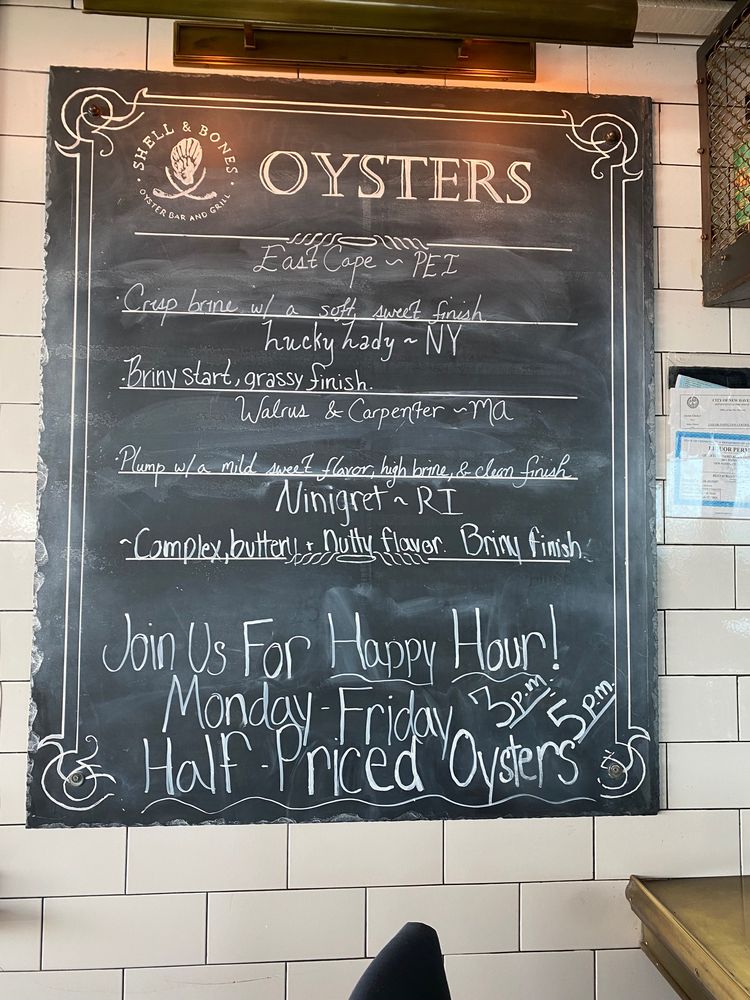 SHELL & BONES
OYSTER BAR AND GRILL
OYSTERS
East Cape ~ PEI
·Crisp brine w/ a soft, sweet finish
Lucky Lady ~ NY
·Briny start, grassy finish.
Walrus & Carpenter ~MA
·Plump w/a mild sweet flavor, high brine, & clean finish
Ninigret ~ RI
~Complex, buttery + Nutty flavor. Briny finish.
Join Us For Happy Hour!
Monday-Friday 3p.m. 5p.m.
Half-Priced Oysters
CITY OF NEW HAVEN